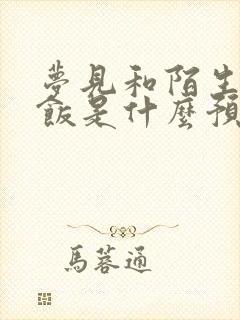 夢見和陌生
飯是什麼預
馬蓉通